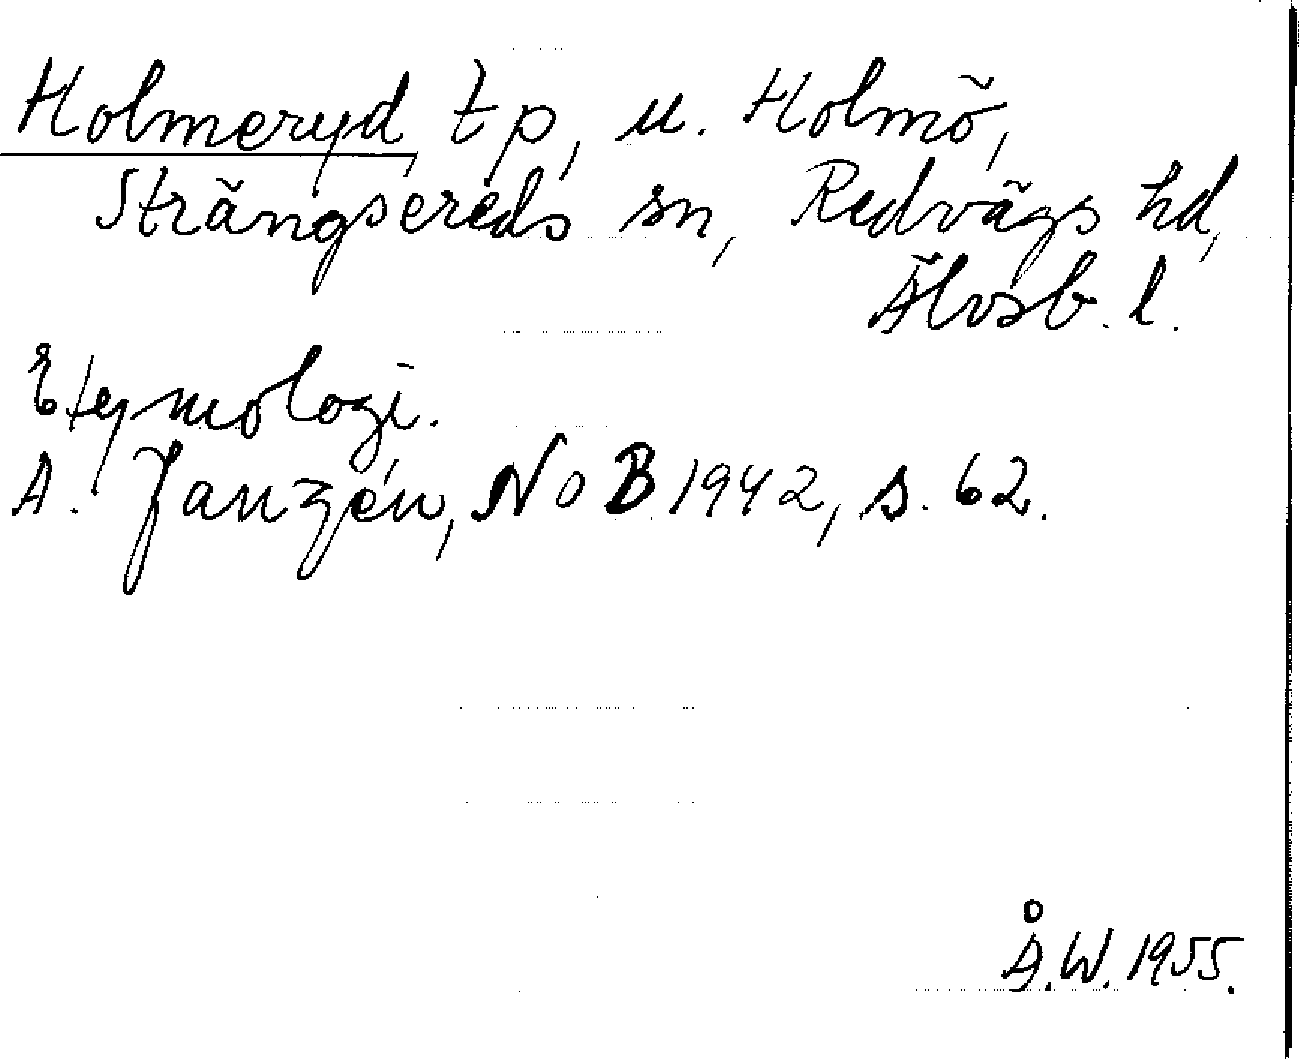 Holmeryd, tp, u. Holmö,
Strängsereds sn, Redvägs hd,
Älvsb. l.
Etymologi.
A. Janzén, NoB 1942, s. 62.
Å.W. 1955.